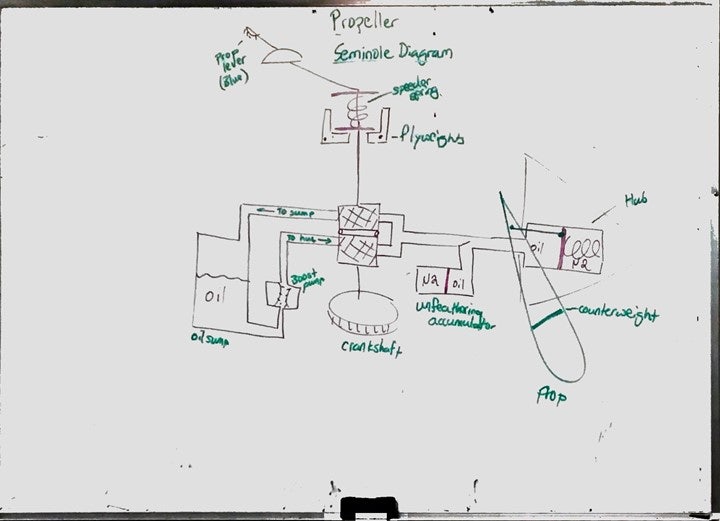 Propeller
Seminole Diagram
Prop
lever
(Blue)
speeder
spring
Flyweights
← To sump
To hub →
Hub
oil
N2
Boost
pump
Oil
N2
Oil
unfeathering
accumulator
counterweight
oil sump
crankshaft
Prop